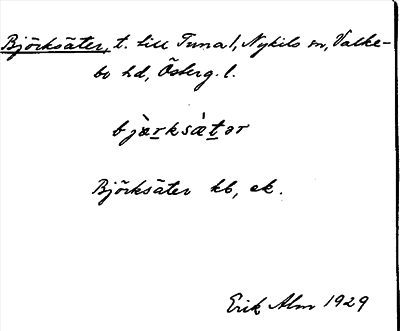 Björksäter, t. till Tuna 1, Nykils sn, Valke-
bo hd, Österg. l.
bjæ̀rksǽtər
Björksäter kb, ek.
Erik Alm 1929